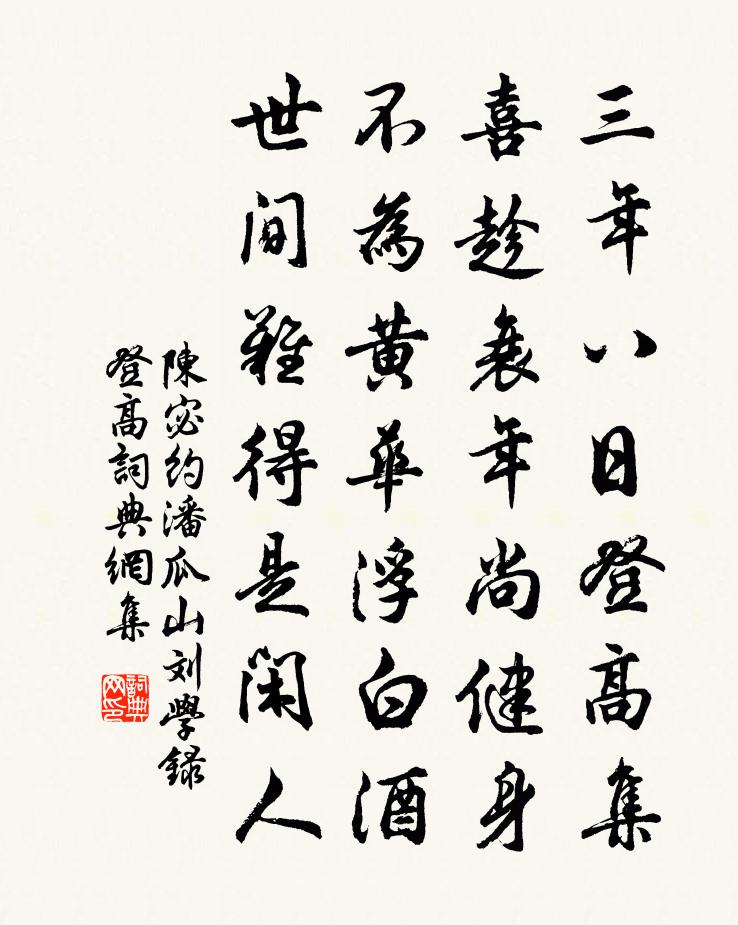 三年八日登高集
喜趁衰年尚健身
不為黄華浮白酒
世间難得是闲人
陳宓约潘瓜山刘學録
登高詞典網集
詞典网印